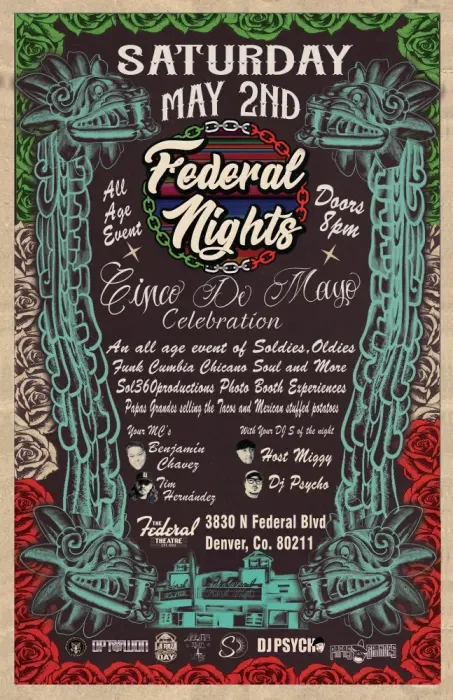 SATURDAY
MAY 2ND
Federal
Nights
All
Age
Event
Doors
8pm
Cinco De Mayo
Celebration
An all age event of Soldies, Oldies
Funk Cumbia Chicano Soul and More
Sol360productions Photo Booth Experiences
Papas Grandes selling the Tacos and Mexican stuffed potatoes
Your MC's
Benjamín
Chavez
Tim
Hernández
With Your DJ S of the night
Host Miggy
Dj Psycho
THE
Federal
THEATRE
3830 N Federal Blvd
Denver, Co. 80211
LA RAZA
DAY
DJ PSYCH